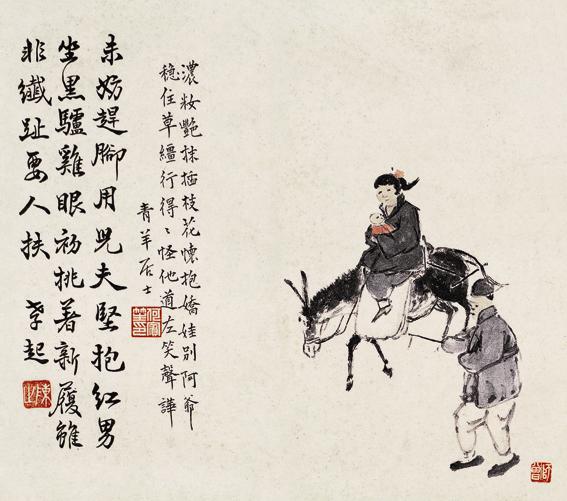 濃妝艷抹插枝花懷抱嬌娃別阿爺
穩住草繮行得〻怪他道左笑聲譁
青羊居士
未妨趕腳用兒夫堅抱紅男
坐黑驢雞眼初挑著新履雖
非纖趾要人扶 孝起
師曾